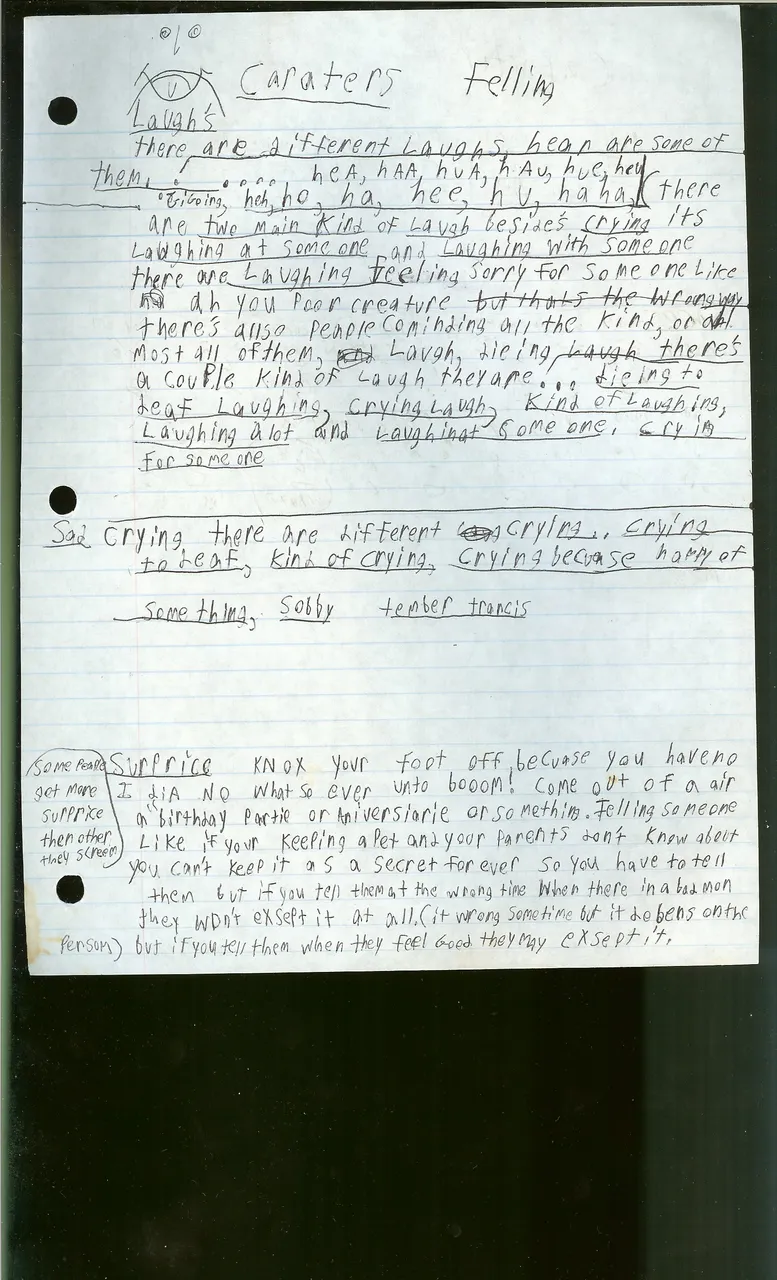 Caraters Felling
Laugh's
there are different Laughs, hear are some of
them. . . . . . heA, hAA, huA, hAu, hue, hey
Gigoing, heh, ho, ha, hee, hu, haha, (there
are two main kind of Laugh besides crying its
Laughing at someone and Laughing with someone
there are Laughing feeling sorry for someone Like
ah you Poor creature but thats the wrong way
there's allso people cominding all the kind, or all
most all of them, Laugh, dieing Laugh there's
a couple kind of Laugh they are... dieing to
deaf Laughing, crying Laugh, kind of Laughing,
Laughing alot and Laughing at someone, cryin
for someone
Sad Crying there are different crying.. crying
to deaf, kind of crying, crying becuase happy of
something, sobby tember trancis
Some People
get more
surprise
then other
they screem
Surprice KNOX your foot off becuase you have no
I diA NO what so ever unto booom! Come out of a air
a birthday Partie or Aniversiarie or so methin. Felling someone
Like if your keeping a Pet and your parents don't know about
you can't keep it as a secret for ever so you have to tell
them but if you tell them at the wrong time when there in a bad mon
they won't exsept it at all. (it wrong sometime but it debens on the
Person) but if you tell them when they feel Good they may exsept it.